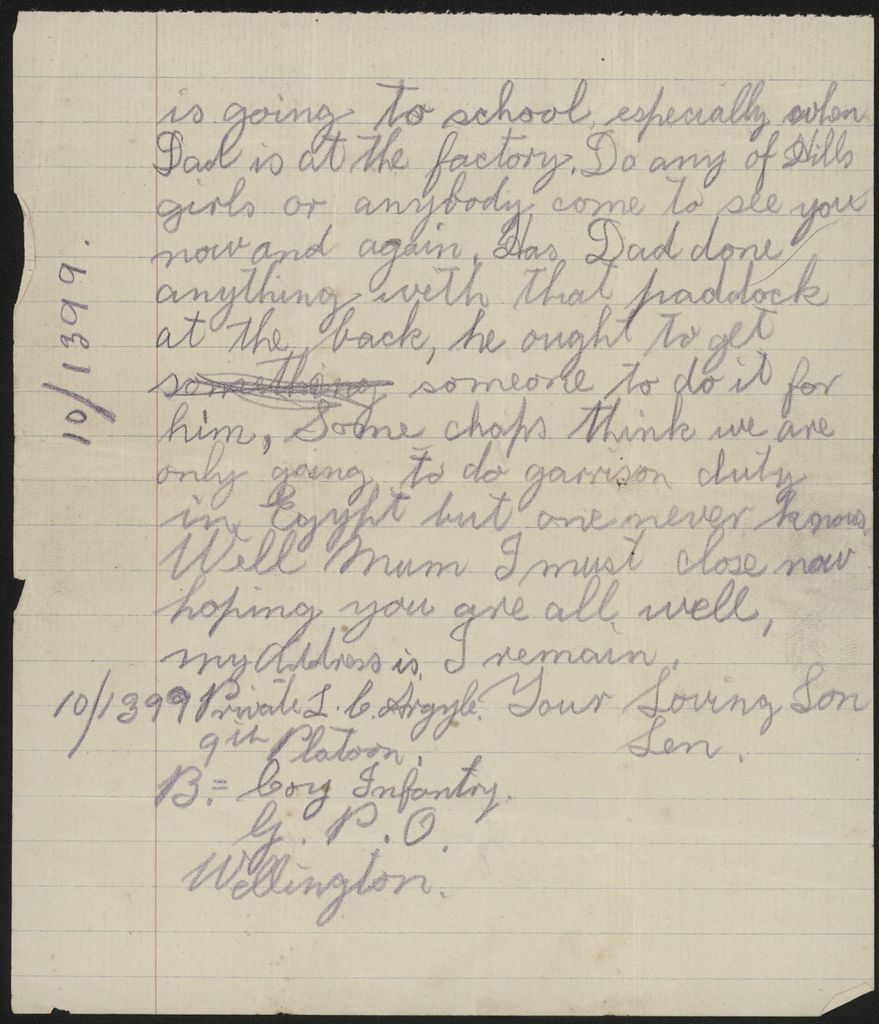 is going to school, especially when
Dad is at the factory. Do any of Hills
girls or anybody come to see you
now and again. Has Dad done
anything with that paddock
at the back, he ought to get
something someone to do it for
him, Some chaps think we are
only going to do garrison duty
in Egypt but one never knows
Well Mum I must close now
hoping you are all well,
my Address is, I remain,
10/1399 Private L. C. Argyle. Your Loving Son
9th Platoon. Len.
B.= Coy Infantry.
G. P. O.
Wellington.
10/1399.